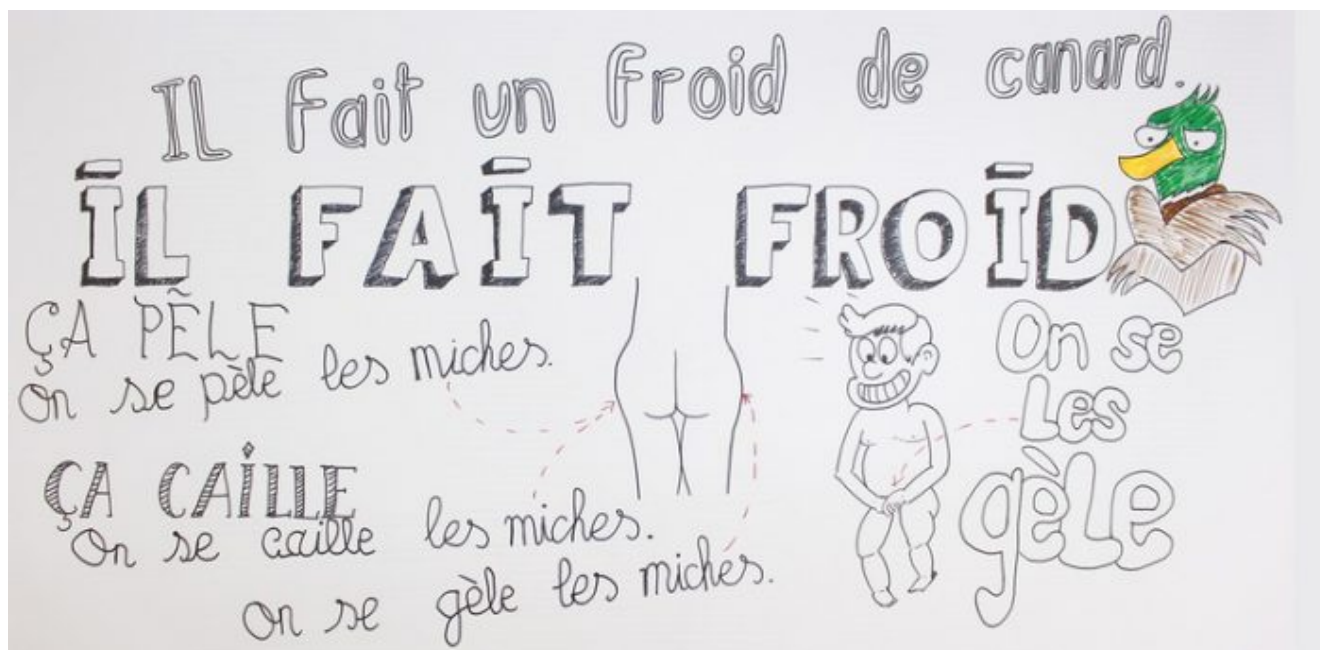 IL fait un froid de canard.
IL FAIT FROID
ÇA PÈLE
On se pèle les miches.
ÇA CAILLE
On se caille les miches.
On se gèle les miches.
On se
Les
gèLe